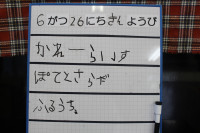 6がつ26にちきんようび
かれーらいす
ぽてとさらだ
ふるうちぇ